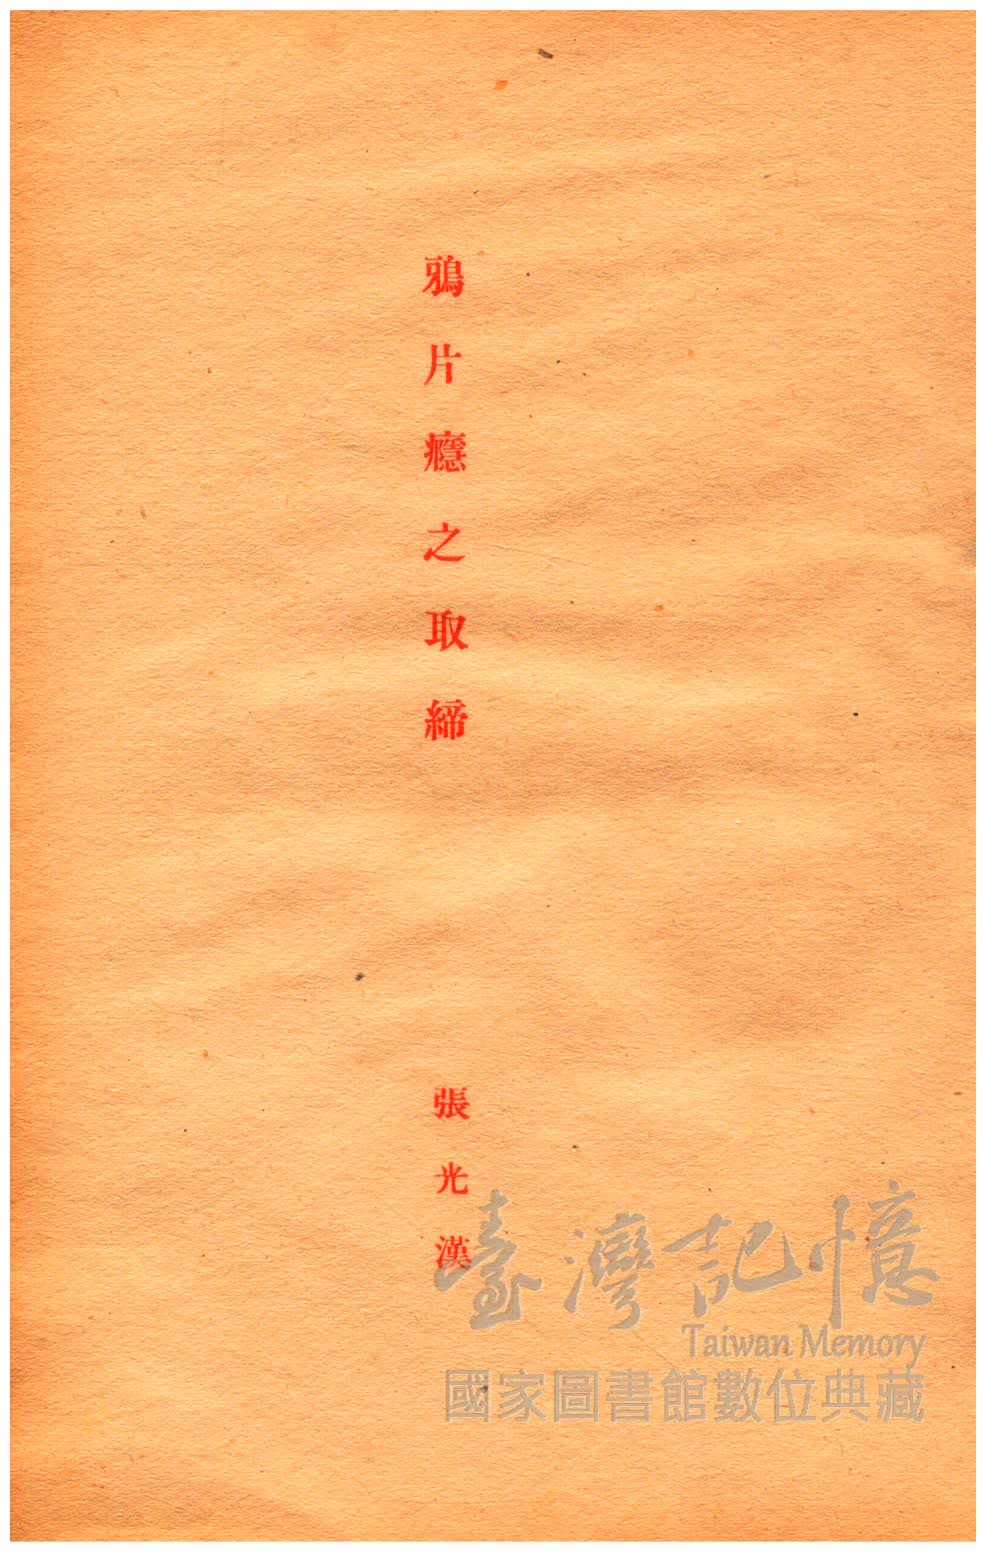 鴉片癮之取締
張光漢
臺灣記憶
Taiwan Memory
國家圖書館數位典藏